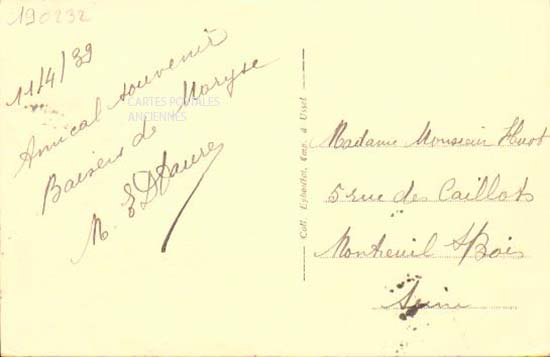 190232
11/4/39
Amical souvenir
Baisers de Maryse
M. E
CARTES POSTALES
ANCIENNES
Coll. Eyboulet, Cap. à Ussel
Madame Monsieur Huot
5 rue des Caillots
Montreuil s/Bois
Seine